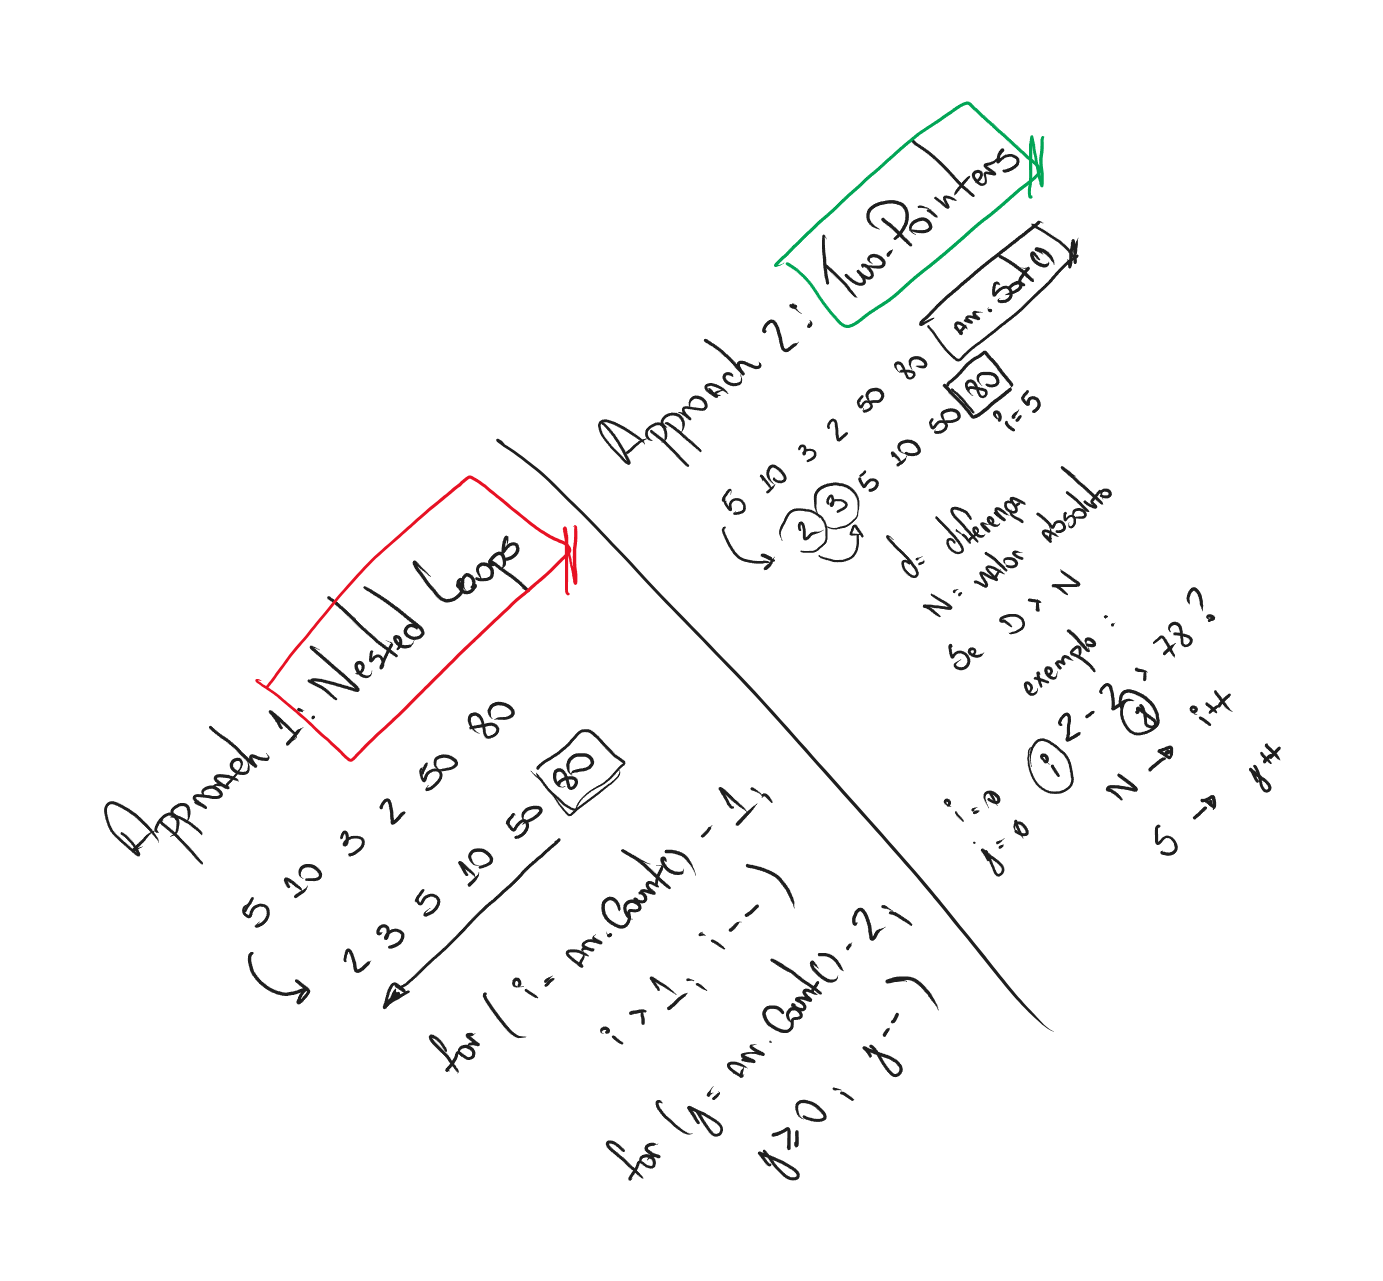 Approach 1: Nested Loops
5 10 3 2 50 80
2 3 5 10 50 80
for (i= Arr.Count() - 1;
i > 1; i--)
for (y= Arr.Count() - 2;
y ≥ 0; y--)
Approach 2: Two-Pointers
Arr.Sort()
5 10 3 2 50 80
2 3 5 10 50 80
i=5
d= diferença
N= valor absoluto
Se D > N
exemplo:
2 - 2 > 78?
i y
i=0
y=0
N → i++
S → y++